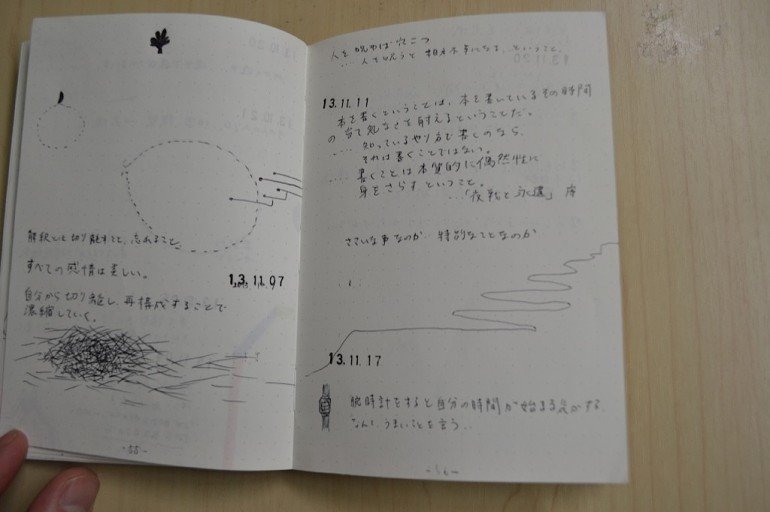 解釈とは切り離すこと、忘れること。
すべての感情は美しい。
13.11.07
自分から切り離し、再構成することで
濃縮していく。
-55-
人を呪わば穴二つ
....人を呪うと相手も不幸になる、ということ。
13.11.11
本を書くということは、本を書いているその時間
の当て処なさを耐えるということだ。
....知っているやり方で書くのなら、
それは書くことではない。
....書くことは本質的に偶然性に
身をさらすということ。
...「夜戦と永遠」 序
ささいな事なのか 特別なことなのか
13.11.17
腕時計をすると自分の時間が始まる気がする
なんて、うまいことを言う。
-56-